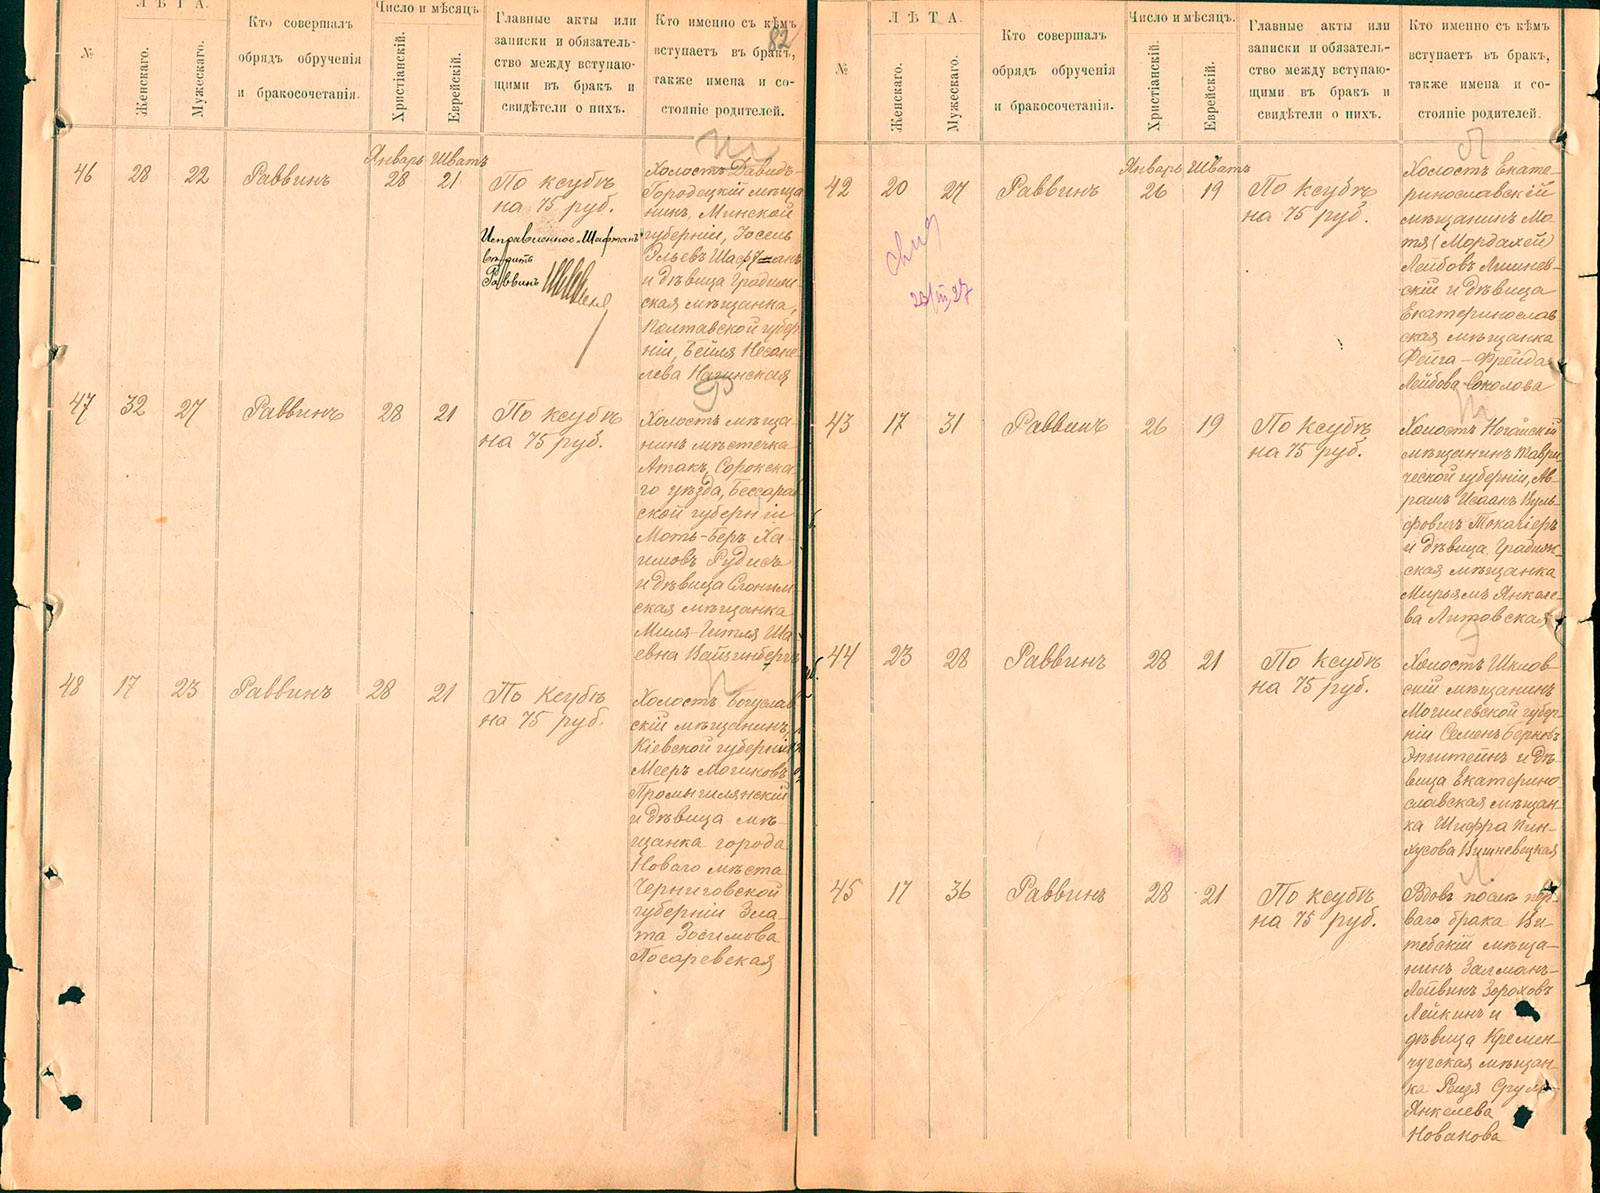 82
Л Ѣ Т А.
№
Женскаго.
Мужескаго.
Кто совершалъ
обрядъ обрученія
и бракосочетанія.
Число и мѣсяцъ
Христіанскій.
Еврейскій.
Главные акты или
записки и обязатель-
ство между вступаю-
щими въ бракъ и
свидѣтели о нихъ.
Кто именно съ кѣмъ
вступаетъ въ бракъ,
также имена и со-
стояніе родителей.
Январь Шватъ
46 28 22 Раввинъ 28 21
По ксубѣ
на 75 руб.
Исправленное „Шафманъ"
вѣрить
Раввинъ
Холостъ Давидъ-
Городецкій мѣща
нинъ, Минской
губерніи, Іосель
Эльевъ Шафманъ
и дѣвица Градиж-
ская мѣщанка,
Полтавской губер
ніи, Бейля Несане-
лева Нагинская
47 32 27 Раввинъ 28 21
По ксубѣ
на 75 руб.
Холостъ мѣща-
нинъ мѣстечка
Атакъ, Сорокска-
го уѣзда, Бессараб
ской губерніи
Моть-Беръ Ха-
имовъ Рудисъ
и дѣвица Слоним-
ская мѣщанка
Миля-Гитля Ша-
евна Вайцинбергъ
48 17 23 Раввинъ 28 21
По ксубѣ
на 75 руб.
Холостъ Богуслав
скій мѣщанинъ,
Кіевской губерніи
Мееръ Мошковъ
Промыгилянскій
и дѣвица мѣ-
щанка города
Новаго мѣста
Черниговской
губерніи Зла-
та Зосимова
Посаревская
Л Ѣ Т А.
№
Женскаго.
Мужескаго.
Кто совершалъ
обрядъ обрученія
и бракосочетанія.
Число и мѣсяцъ.
Христіанскій.
Еврейскій.
Главные акты или
записки и обязатель-
ство между вступаю-
щими въ бракъ и
свидѣтели о нихъ.
Кто именно съ кѣмъ
вступаетъ въ бракъ,
также имена и со-
стояніе родителей.
Январь Шватъ
42 20 27 Раввинъ 26 19
По ксубѣ
на 75 руб.
Холостъ Екате-
ринославскій
мѣщанинъ Мо-
тя (Мордахай)
Лейбовъ Лишнев-
скій и дѣвица
Екатеринослав
ская мѣщанка
Фейга-Фрейда
Лейбова Соколова
43 17 31 Раввинъ 26 19
По ксубѣ
на 75 руб.
Холостъ Ногайскій
мѣщанинъ Таври-
ческой губерніи, Ав-
рамъ Исаакъ Вуль-
фовичъ Токачіеръ
и дѣвица Градиж-
ская мѣщанка
Мирьямъ Янкеле-
ва Литовская
44 23 28 Раввинъ 28 21
По ксубѣ
на 75 руб.
Холостъ Шклов-
скій мѣщанинъ
Могилевской губер-
ніи Семенъ Берковъ
Эпштейнъ и дѣ-
вица Екатерино
славская мѣщан-
ка Шифра Пин-
хусова Вишневецкая
45 17 36 Раввинъ 28 21
По ксубѣ
на 75 руб.
Вдовъ послѣ пер-
ваго брака Ви-
тебскій мѣща-
нинъ Залманъ-
Лейвинъ Зороховъ
Лейкинъ и
дѣвица Кремен-
чугская мѣщан-
ка Рейзя Срулъ-
Янкелева
Новакова